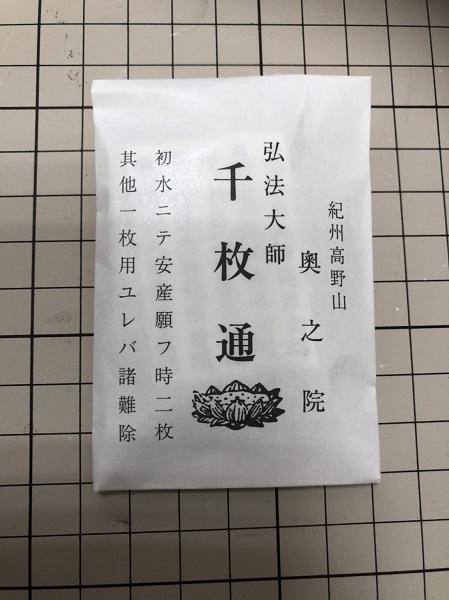 紀州高野山
奥之院
弘法大師
千枚通
初水ニテ安産願フ時二枚
其他一枚用ユレバ諸難除